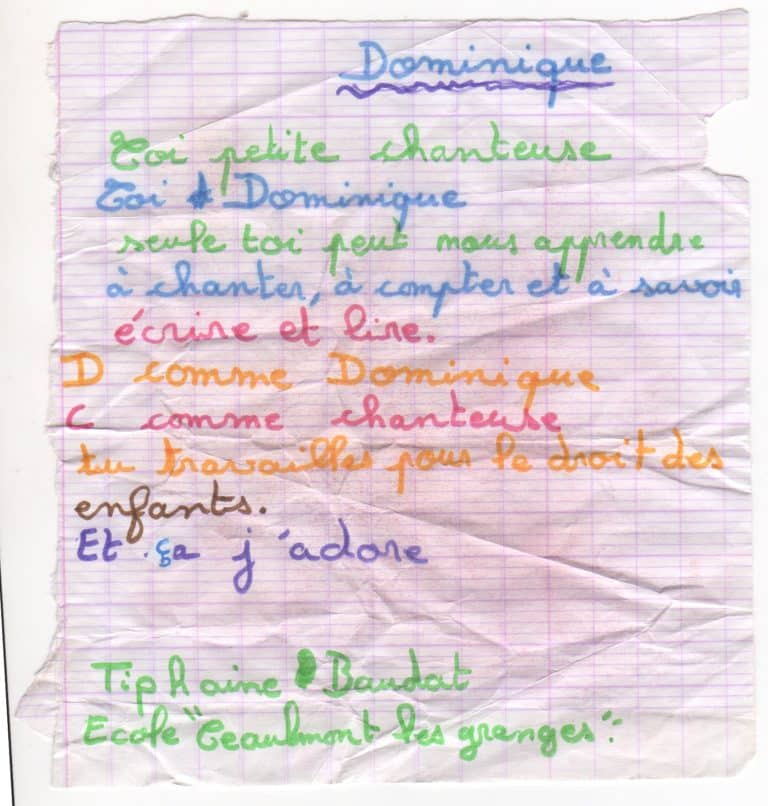 Dominique
Toi petite chanteuse
Toi Dominique
seule toi peut nous apprendre
à chanter, à compter et à savoir
écrire et lire.
D comme Dominique
C comme chanteuse
tu travailles pour le droit des
enfants.
Et ça j'adore
Tiphaine Baudat
Ecole "Ceaulmont les granges".